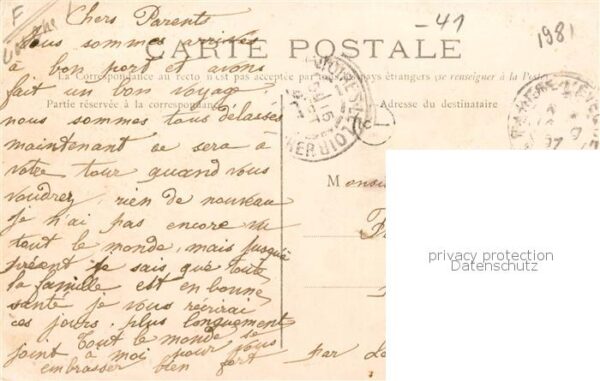 F
-41
1981
Chers Parents
Nous sommes arrivés
CARTE POSTALE
à bon port et avons
La Correspondance au recto n'est pas acceptée par tous les pays étrangers (se renseigner à la Poste)
fait un bon voyage
Partie réservée à la correspondance
Adresse du destinataire
nous sommes tous délassés
maintenant se sera à
votre tour quand vous
voudrez, rien de nouveau
je n'ai pas encore vu
tout le monde, mais jusqu'à
présent je sais que toute
la famille est en bonne
santé je vous récrirai
ces jours plus longuement
Tout le monde se
joint à moi pour vous
embrasser bien fort
Monsieu
par
privacy protection
Datenschutz